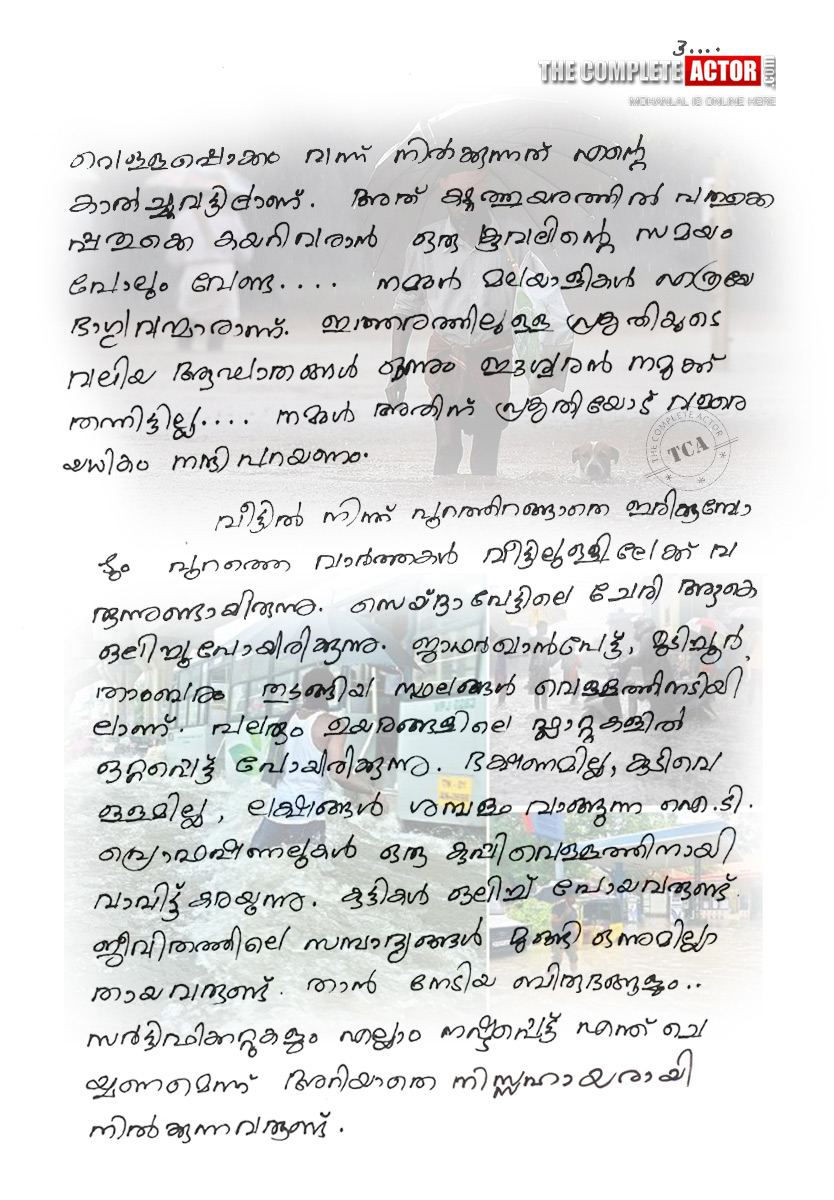 3....
THE COMPLETE ACTOR .com
MOHANLAL IS ONLINE HERE
വെള്ളപ്പൊക്കം വന്ന് നിൽക്കുന്നത് എന്റെ
കാൽച്ചുവട്ടിലാണ്. അത് കഴുത്തുയരത്തിൽ പതുക്കെ
പതുക്കെ കയറിവരാൻ ഒരു രൂവലിന്റെ സമയം
പോലും വേണ്ട.... നമ്മൾ മലയാളികൾ എത്രയോ
ഭാഗ്യവന്മാരാണ്. ഇത്തരത്തിലുള്ള പ്രകൃതിയുടെ
വലിയ ആഘാതങ്ങൾ ഒന്നും ഈശ്വരൻ നമുക്ക്
തന്നിട്ടില്ല.... നമ്മൾ അതിന് പ്രകൃതിയോട് വളരെ
യധികം നന്ദി പറയണം.
THE COMPLETE ACTOR
TCA
വീട്ടിൽ നിന്ന് പുറത്തിറങ്ങാതെ ഇരിക്കുമ്പോ
ഴും പുറത്തെ വാർത്തകൾ വീട്ടിലുള്ളിലേക്ക് വ
രുന്നുണ്ടായിരുന്നു. സെയ്ദാപേട്ടിലെ ചേരി ആകെ
ഒലിച്ചുപോയിരിക്കുന്നു. ജാഫർഖാൻപേട്ട്, മുടിച്ചൂർ,
താംബരം തുടങ്ങിയ സ്ഥലങ്ങൾ വെള്ളത്തിനടിയി
ലാണ്. പലരും ഉയരങ്ങളിലെ ഫ്ലാറ്റുകളിൽ
ഒറ്റപ്പെട്ട് പോയിരിക്കുന്നു. ഭക്ഷണമില്ല, കുടിവെ
ള്ളമില്ല, ലക്ഷങ്ങൾ ശമ്പളം വാങ്ങുന്ന ഐ.ടി.
പ്രൊഫഷണലുകൾ ഒരു കുപ്പി വെള്ളത്തിനായി
വാവിട്ട് കരയുന്നു. കുട്ടികൾ ഒലിച്ച് പോയവരുണ്ട്.
ജീവിതത്തിലെ സമ്പാദ്യങ്ങൾ മുങ്ങി ഒന്നുമില്ലാ
തായവരുണ്ട്. താൻ നേടിയ ബിരുദങ്ങളും..
സർട്ടിഫിക്കറ്റുകളും എല്ലാം നഷ്ടപ്പെട്ട് എന്ത് ചെ
യ്യണമെന്ന് അറിയാതെ നിസ്സഹായരായി
നിൽക്കുന്നവരുണ്ട്.